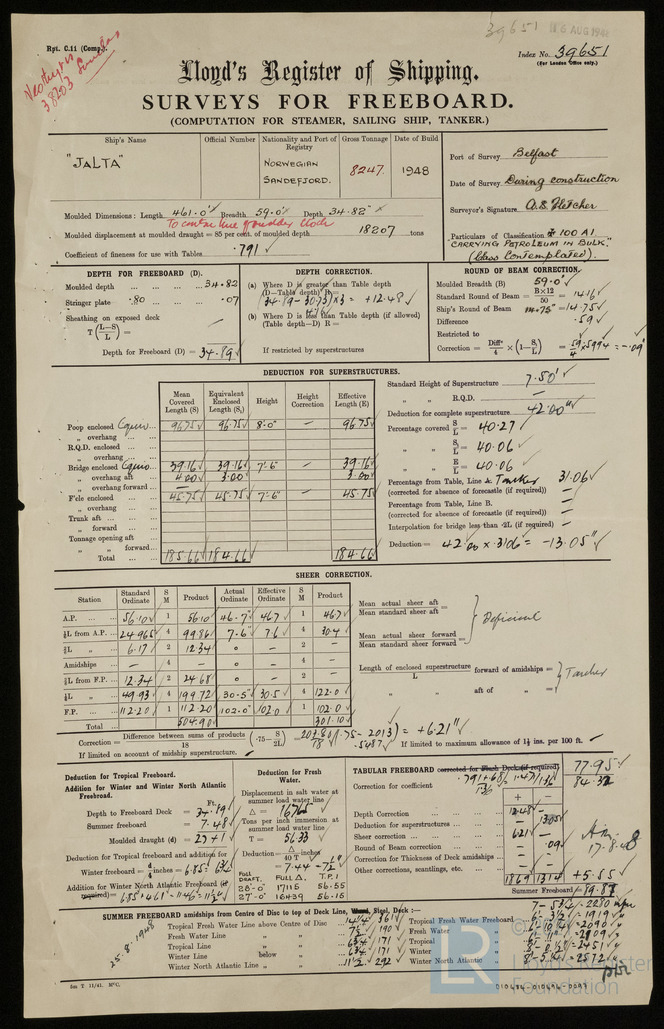 39651 6 AUG 1948
Rpt. C.11 (Comp.).
Index No. 39651
(For London Office only.)
Neothyris
38203 Sundas
Lloyd's Register of Shipping.
SURVEYS FOR FREEBOARD.
(COMPUTATION FOR STEAMER, SAILING SHIP, TANKER.)
Ship's Name Official Number Nationality and Port of Registry Gross Tonnage Date of Build
"JALTA" NORWEGIAN SANDEFJORD. 8247. 1948
Port of Survey Belfast
Date of Survey During construction
Surveyor's Signature A.S. Fletcher
Particulars of Classification 100 A1
"CARRYING PETROLEUM IN BULK."
(Class Contemplated).
Moulded Dimensions: Length 461.0' Breadth 59.0' Depth 34.82'
To centre line of rudder stock
Moulded displacement at moulded draught = 85 per cent. of moulded depth 18207 tons
Coefficient of fineness for use with Tables .791
DEPTH FOR FREEBOARD (D).
Moulded depth 34.82
Stringer plate .80 .07
Sheathing on exposed deck
T (L-S/L) =
Depth for Freeboard (D) = 34.89
DEPTH CORRECTION.
(a) Where D is greater than Table depth
(D-Table depth) R =
(34.89-30.73) x 3 = +12.48
(b) Where D is less than Table depth (if allowed)
(Table depth-D) R =
If restricted by superstructures
ROUND OF BEAM CORRECTION.
Moulded Breadth (B) 59.0'
Standard Round of Beam = B×12/50 = 14.16
Ship's Round of Beam 14.75" = 14.75
Difference .59
Restricted to
Correction = Diff/4 × (1-S/L) = .59/4 x .5994 = -.09
DEDUCTION FOR SUPERSTRUCTURES.
Mean Covered Length (S) Equivalent Enclosed Length (S₁) Height Height Correction Effective Length (E)
Poop enclosed 96.75 96.75 8'-0" — 96.75
„ overhang
R.Q.D. enclosed
„ overhang
Bridge enclosed 39.16 39.16 7'-6" — 39.16
„ overhang aft 4.00 3.00 3.00
„ overhang forward —
F'cle enclosed 45.75 45.75 7'-6" — 45.75
„ overhang
Trunk aft
„ forward
Tonnage opening aft
„ „ forward
Total 185.66 184.66 184.66
Standard Height of Superstructure 7.50'
„ „ R.Q.D. —
Deduction for complete superstructure 42.00"
Percentage covered S/L = 40.27
„ „ S₁/L = 40.06
„ „ E/L = 40.06
Percentage from Table, Line A Tanker 31.06
(corrected for absence of forecastle (if required)) —
Percentage from Table, Line B. —
(corrected for absence of forecastle (if required)) —
Interpolation for bridge less than .2L (if required) —
Deduction = 42.00 x .3106 = -13.05"
SHEER CORRECTION.
Station Standard Ordinate S M Product Actual Ordinate Effective Ordinate S M Product
A.P. 56.10 1 56.10 46.7" 46.7 1 46.7
⅙L from A.P. 24.965 4 99.86 7.6 7.6 4 30.4
⅓L „ 6.17 2 12.34 0 — 2 —
Amidships — 4 — 0 — 4 —
⅓L from F.P. 12.34 2 24.68 0 — 2 —
⅙L „ 49.93 4 199.72 30.5" 30.5 4 122.0
F.P. 112.20 1 112.20 102.0" 102.0 1 102.0
Total 504.90 301.10
Mean actual sheer aft =
Mean standard sheer aft
Mean actual sheer forward =
Mean standard sheer forward
Deficient
Length of enclosed superstructure/L forward of amidships =
„ „ aft of „ =
Tanker
Correction = Difference between sums of products/18 (.75 - S/2L) = 203.80/18 (.75-.2013) = +6.21"
.5487
If limited on account of midship superstructure.
If limited to maximum allowance of 1½ ins. per 100 ft.
Deduction for Tropical Freeboard.
Addition for Winter and Winter North Atlantic Freeboard.
Ft.
Depth to Freeboard Deck = 34.89
Summer freeboard = 7.48
Moulded draught (d) = 27.41
Deduction for Tropical freeboard and addition for
Winter freeboard = d/4 inches = 6.85 = 6¾
Addition for Winter North Atlantic Freeboard (if required) = 6.85 + 4.61 = 11.46 = 11½
Deduction for Fresh Water.
Displacement in salt water at summer load water line
Δ = 16765
Tons per inch immersion at summer load water line
T = 56.33
Deduction = Δ/40T inches
= 7.44 = 7½
FULL DRAFT. FULL Δ. T.P.I
28'-0" 17115 56.55
27'-0" 16439 56.16
TABULAR FREEBOARD corrected for Flush Deck (if required) 77.95
Correction for coefficient .791+.68/1.36 = 1.471/1.36 84.32
+ -
Depth Correction 12.48
Deduction for superstructures 13.05
Sheer correction 6.21
Round of Beam correction .09
Correction for Thickness of Deck amidships —
Other corrections, scantlings, etc.
18.69 13.14 +5.55
Summer Freeboard = 89.87
17.8.48
SUMMER FREEBOARD amidships from Centre of Disc to top of Deck Line, Wood, Steel, Deck:—
25.8.1948
Tropical Fresh Water Line above Centre of Disc 14¼ 361
Fresh Water Line „ „ 7½ 190
Tropical Line „ „ 6¾ 171
Winter Line below „ 6¾ 171
Winter North Atlantic Line „ „ 11½ 292
7'- 5¾" - 2280
Tropical Fresh Water Freeboard 6'- 3½" - 1919
Fresh Water „ 6'- 10¼" - 2090
Tropical „ 6'- 11" - 2109
Winter „ 8'- 0½" - 2451
Winter North Atlantic „ 8'- 5¼" - 2572
5m T. 11/41. MºC.
© Lloyd's Register
Foundation
LR
010484-010496-0097